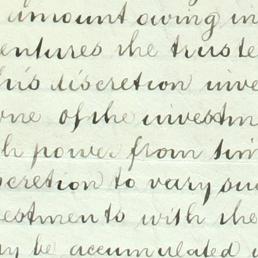 amount owing in
entures the truste
his discretion inve
one of the investm
h power from tim
scretion to vary suc
estments to with the
ay be accumulated